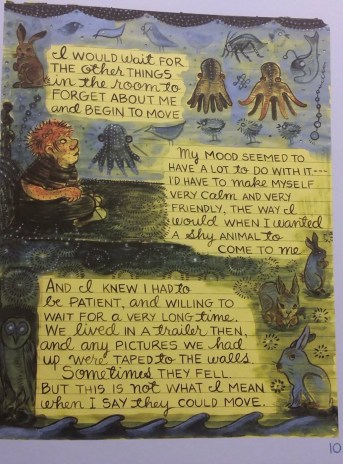 I WOULD wait FOR
THE other THINGS
in the room to
FORGET ABOUT ME
and BEGIN TO MOVE
My MOOD SEEMED TO
HAVE A LOT to DO WITH IT---
I'D HAVE TO make MYSELF
VERY CALM AND VERY
FRIENDLY, THE WAY I
would WHEN I WANTED
A shy ANIMAL to
COME TO me.
AND I KNEW I HAD to
be PATIENT, and WILLING TO
WAIT FOR a VERY LONG time.
WE lived IN A trailer THEN,
and any PICTURES WE had
up were TAPED to THE walls.
Sometimes THEY FELL.
BUT THIS IS not WHAT I MEAN
when I SAY they COULD MOVE.
10